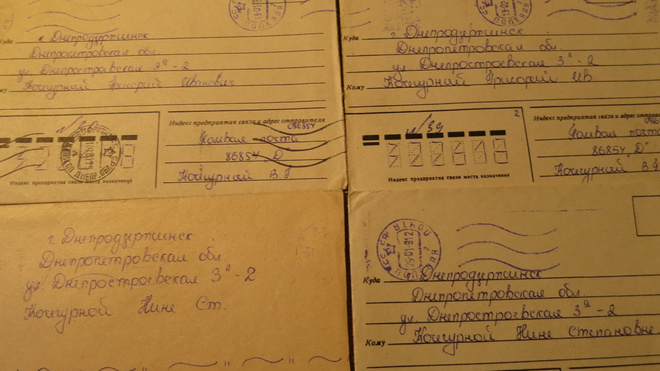 Куда г. Днепродзержинск
Днепропетровская обл.
ул. Днепростроевская 3ª-2
Кому Кошурной Григорий Иванович
Индекс предприятия связи и адрес отправителя
Полевая почта
86854 "D"
Кошурной В.Г
Индекс предприятия связи места назначения
Куда г. Днепродзержинск
Днепропетровская обл.
ул Днепростроевская 3ª-2
Кому Кошурной Григорий Ив
2
39
Индекс предприятия связи и адрес отправителя
Полевая почта
86854 "D"
Кошурной В.Г
Индекс предприятия связи места назначения
г. Днепродзержинск
Днепропетровская обл.
ул. Днепростроевская 3ª-2
Кошурной Нине Ст.
СССР ПОЧТА ПОЛЕВАЯ
Куда г. Днепродзержинск
Днепропетровская обл.
ул. Днепростроевская 3ª-2
Кому Кошурной Нине Степановне